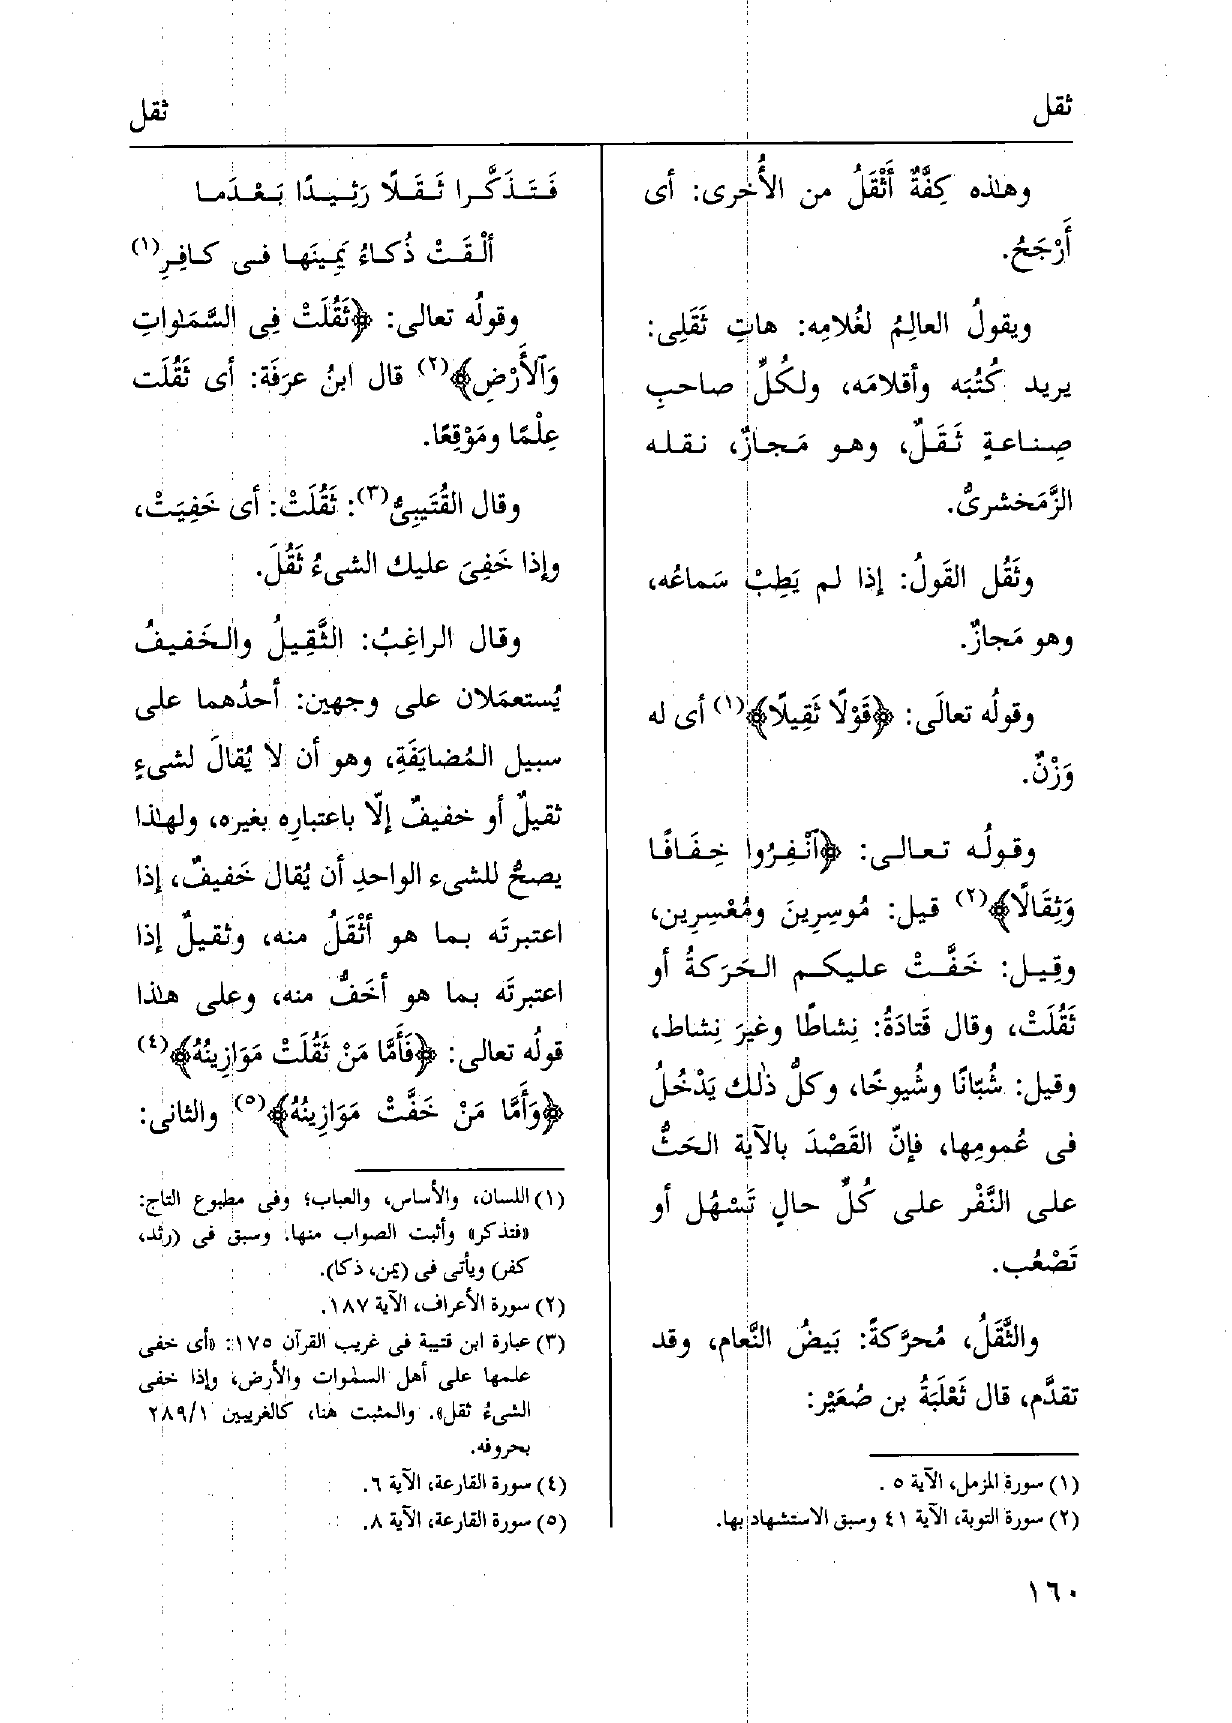 ثقل
ثقل
وهذه كِفَّةٌ أَثْقَلُ من الأُخرى: أى
أَرْجَحُ.
ويقولُ العالِمُ لغُلامِه: هاتِ ثَقَلِى:
يريد كُتُبَه وأقلامَه، ولكُلِّ صاحبِ
صِناعةٍ ثَقَلٌ، وهو مَجازٌ، نقله
الزَّمَخشرىُّ.
وثَقُل القَولُ: إذا لم يَطِبْ سَماعُه،
وهو مَجازٌ.
وقولُه تعالَى: ﴿قَوْلًا ثَقِيلًا﴾(١) أى له
وَزْنٌ.
وقولُه تعالى: ﴿ٱنْفِرُوا خِفَافًا
وَثِقَالًا﴾(٢) قيل: مُوسِرِينَ ومُعْسِرِين،
وقِيل: خَفَّتْ عليكم الحَرَكةُ أو
ثَقُلَتْ، وقال قَتادَةُ: نِشاطًا وغيرَ نِشاط،
وقيل: شُبّانًا وشُيوخًا، وكلُّ ذٰلك يَدْخُلُ
فى عُمومِها، فإنّ القَصْدَ بالآية الحَثُّ
على النَّفْر على كُلِّ حالٍ تَسْهُل أو
تَصْعُب.
والثَّقَلُ، مُحرَّكةً: بَيضُ النَّعام، وقد
تقدَّم، قال ثَعْلَبَةُ بن صُعَيْر:
(١) سورة المزمل، الآية ٥ .
(٢) سورة التوبة، الآية ٤١ وسبق الاستشهاد بها.
فَتَذَكَّرا ثَقَلًا رَثِيدًا بَعْدَما
ألْقَتْ ذُكاءُ يَمِينَها فى كافِرِ(١)
وقولُه تعالى: ﴿ثَقُلَتْ فِى السَّمَٰواتِ
وَٱلأَرْضِ﴾(٢) قال ابنُ عرَفَة: أى ثَقُلَت
عِلْمًا ومَوْقِعًا.
وقال القُتَيبِىُّ(٣): ثَقُلَتْ: أى خَفِيَتْ،
وإذا خَفِىَ عليك الشىءُ ثَقُلَ.
وقال الراغِبُ: الثَّقِيلُ والخَفيفُ
يُستعمَلان على وجهين: أحدُهما على
سبيل المُضايَفَةِ، وهو أن لا يُقالَ لشىءٍ
ثقيلٌ أو خفيفٌ إلّا باعتبارِه بغيره، ولهٰذا
يصحُّ للشىء الواحدِ أن يُقال خَفيفٌ، إذا
اعتبرتَه بما هو أثْقَلُ منه، وثقيلٌ إذا
اعتبرتَه بما هو أخَفُّ منه، وعلى هٰذا
قولُه تعالى: ﴿فَأَمَّا مَنْ ثَقُلَتْ مَوَازِينُهُ﴾(٤)
﴿وَأَمَّا مَنْ خَفَّتْ مَوَازِينُهُ﴾(٥) والثانى:
(١) اللسان، والأساس، والعباب؛ وفى مطبوع التاج:
«فتذكر» وأثبت الصواب منها. وسبق فى (رثد،
كفر) ويأتى فى (يمن، ذكا).
(٢) سورة الأعراف، الآية ١٨٧.
(٣) عبارة ابن قتيبة فى غريب القرآن ١٧٥: «أى خفى
علمها على أهل السمٰوات والأرض، وإذا خفى
الشىءُ ثقل». والمثبت هنا، كالغريبين ٢٨٩/١
بحروفه.
(٤) سورة القارعة، الآية ٦.
(٥) سورة القارعة، الآية ٨.
١٦٠